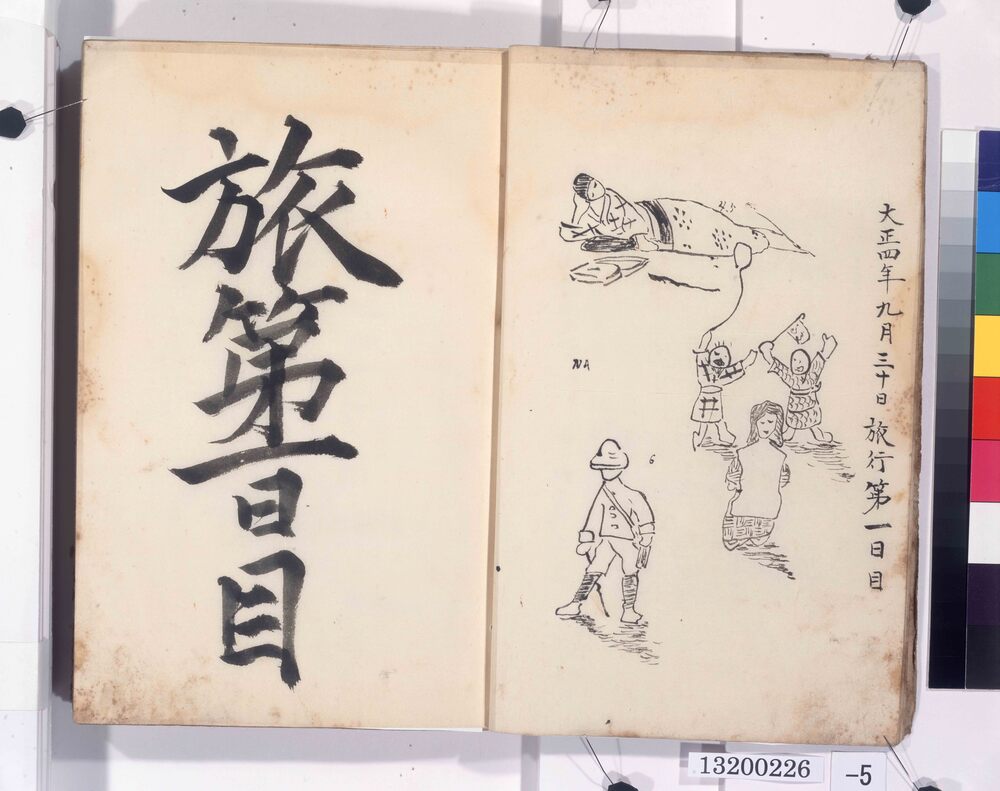 大正四年九月三十日旅行第一日目
旅第一日目
NA
6
13200226
-5